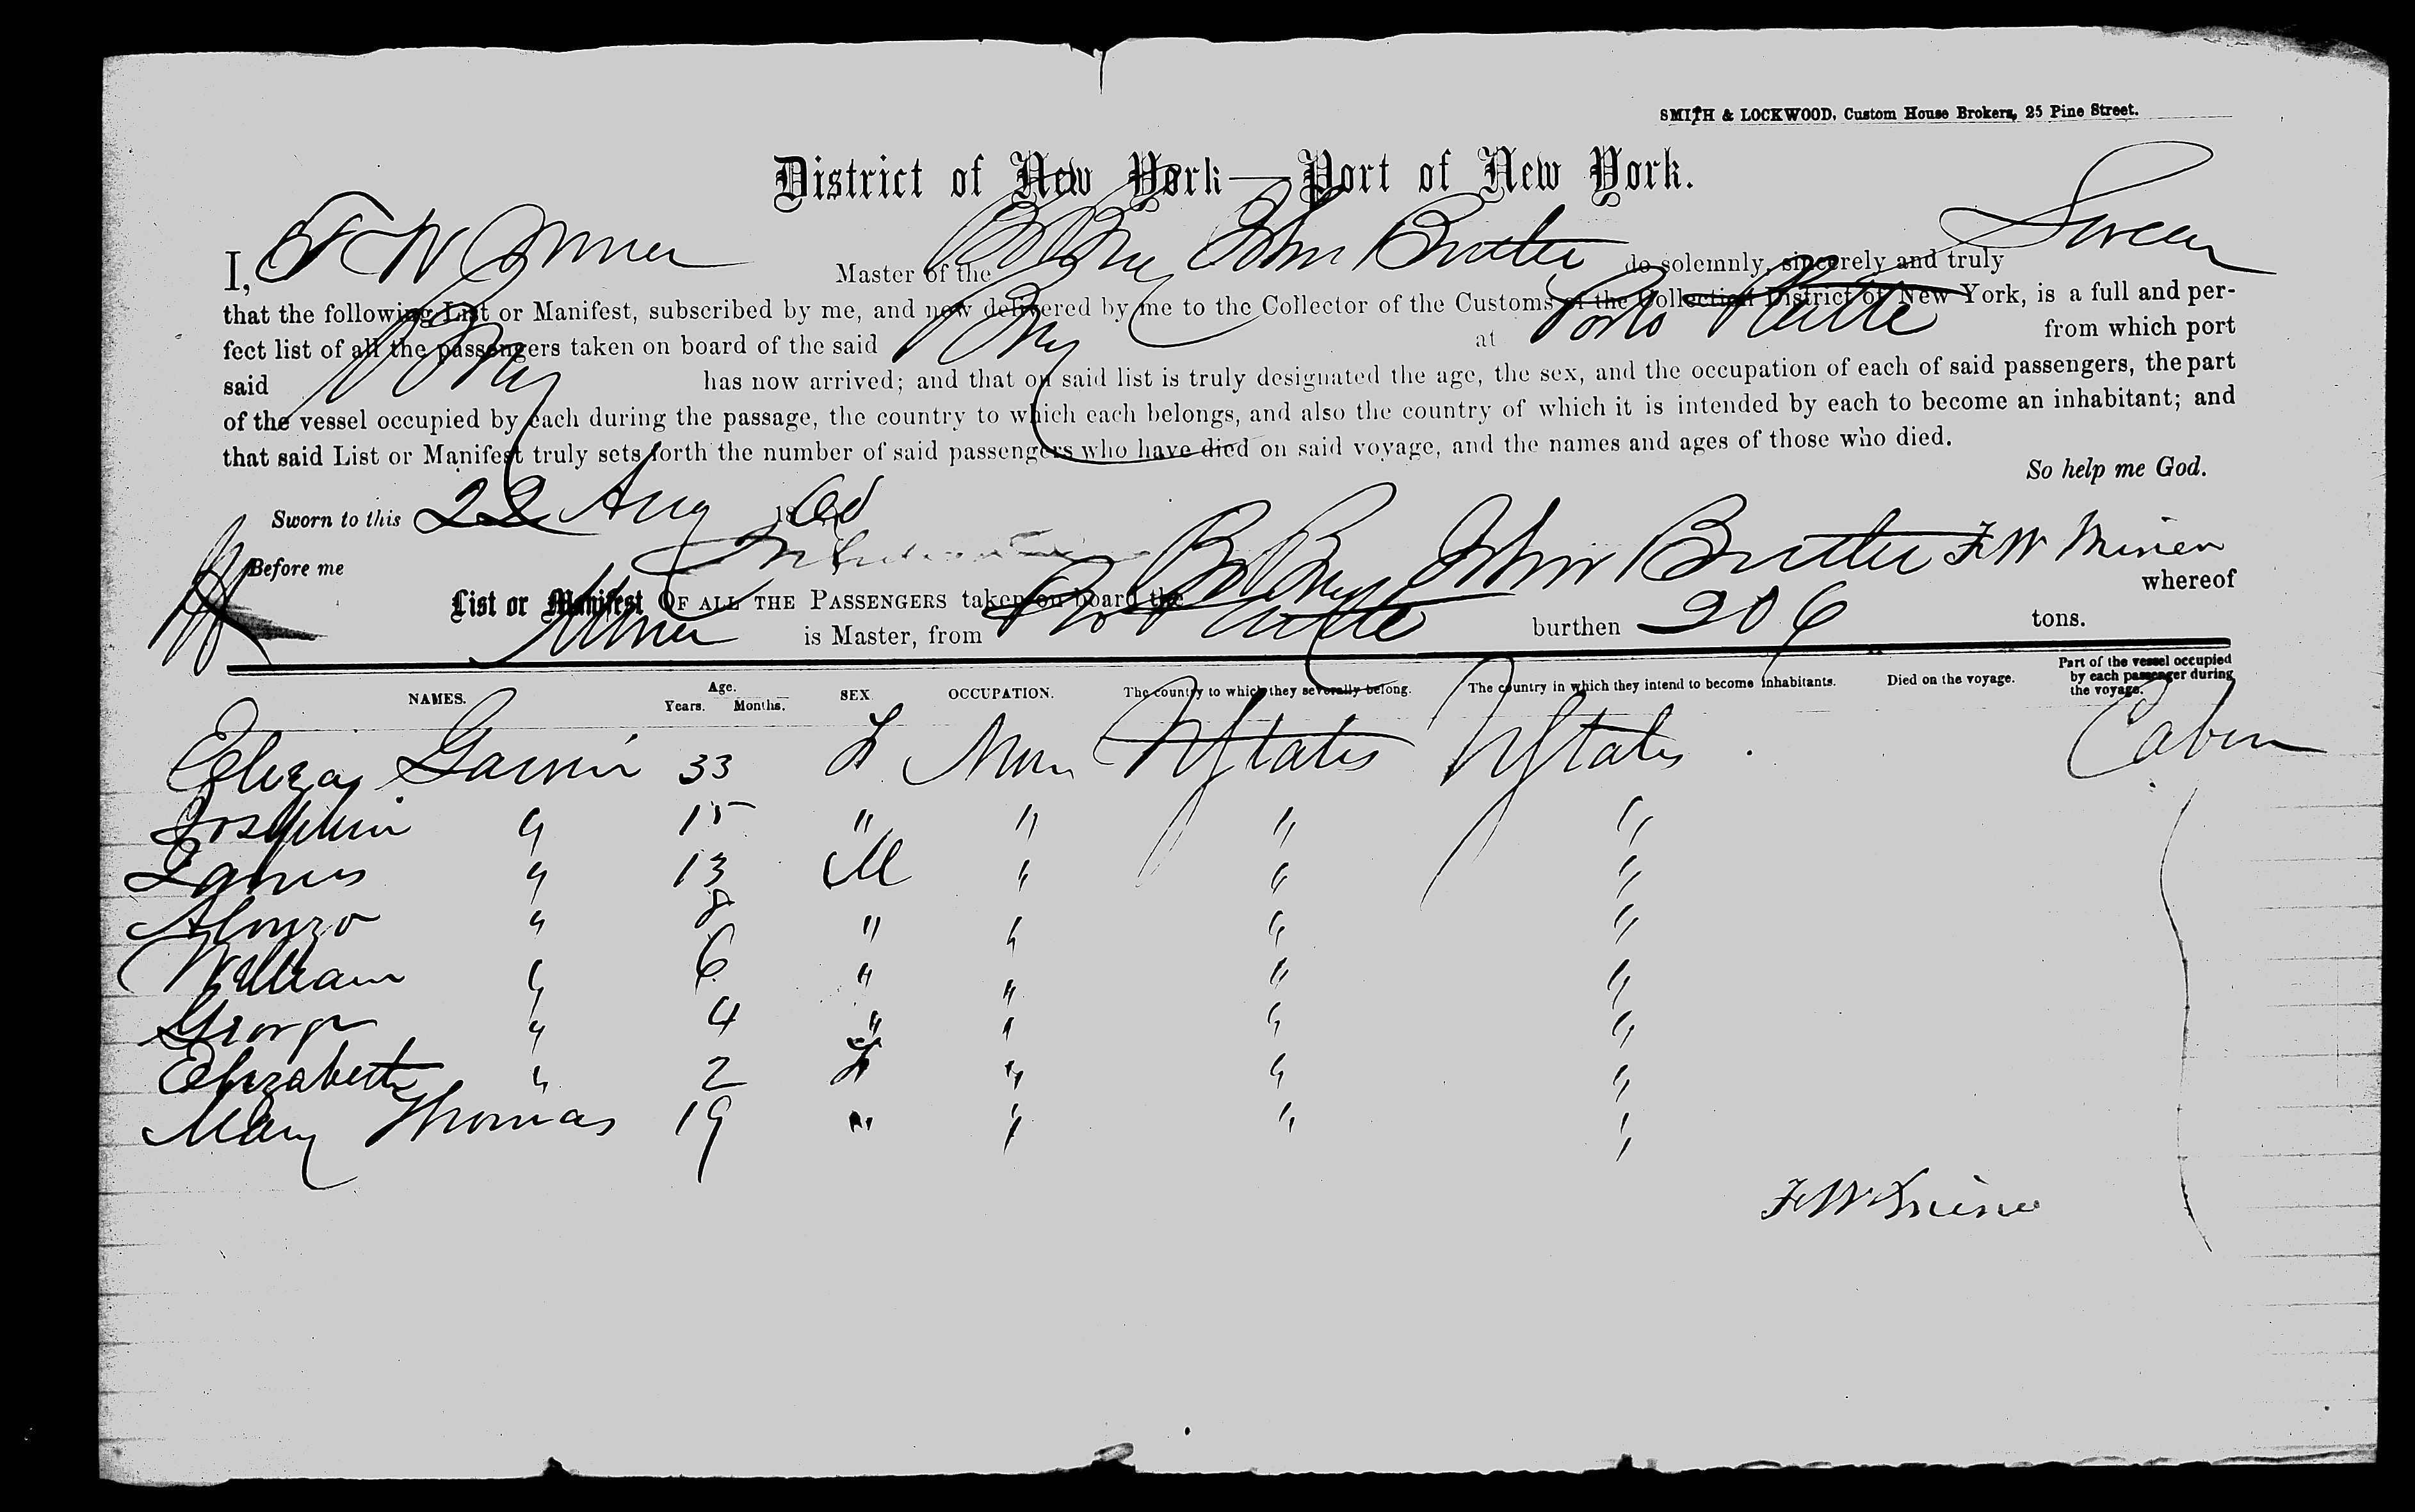 SMITH & LOCKWOOD, Custom House Brokers, 25 Pine Street.
District of New York—Port of New York.
I, F W Master of the John Butler do solemnly, sincerely and truly Swear
that the following List or Manifest, subscribed by me, and now delivered by me to the Collector of the Customs of the Collection District of New York, is a full and per-
fect list of all the passengers taken on board of the said Brig at Porto Platte from which port
said Brig has now arrived; and that on said list is truly designated the age, the sex, and the occupation of each of said passengers, the part
of the vessel occupied by each during the passage, the country to which each belongs, and also the country of which it is intended by each to become an inhabitant; and
that said List or Manifest truly sets forth the number of said passengers who have died on said voyage, and the names and ages of those who died.
So help me God.
Sworn to this 22 Aug 186
Before me F W
List or Manifest OF ALL THE PASSENGERS taken on board the Brig John Butler whereof
is Master, from Porto Platte burthen 206 tons.
NAMES. Age. Years. Months. SEX. OCCUPATION. The country to which they severally belong. The country in which they intend to become inhabitants. Died on the voyage. Part of the vessel occupied by each passenger during the voyage.
Eliza 33 F None U States U States Cabin
Josephin " 15 " " " "
James " 13 M " " "
Alonzo " 8 " " " "
William " 6 " " " "
George " 4 " " " "
Elizabeth " 2 F " " "
Mary Thomas 19 " " " "
F W